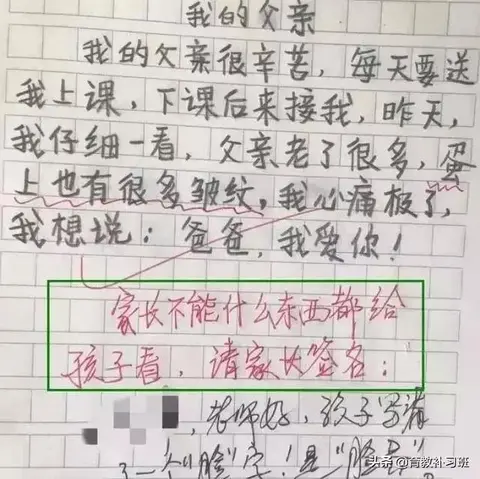 我的父亲
我的父亲很辛苦，每天要送
我上课，下课后来接我，昨天，
我仔细一看，父亲老了很多，蛋
上也有很多皱纹，我心痛极了，
我想说：爸爸，我爱你！
家长不能什么东西都给
孩子看，请家长签名：
，老师好，孩子写漏
了一个“脸”字！是“脸蛋”
头条@育教补习班